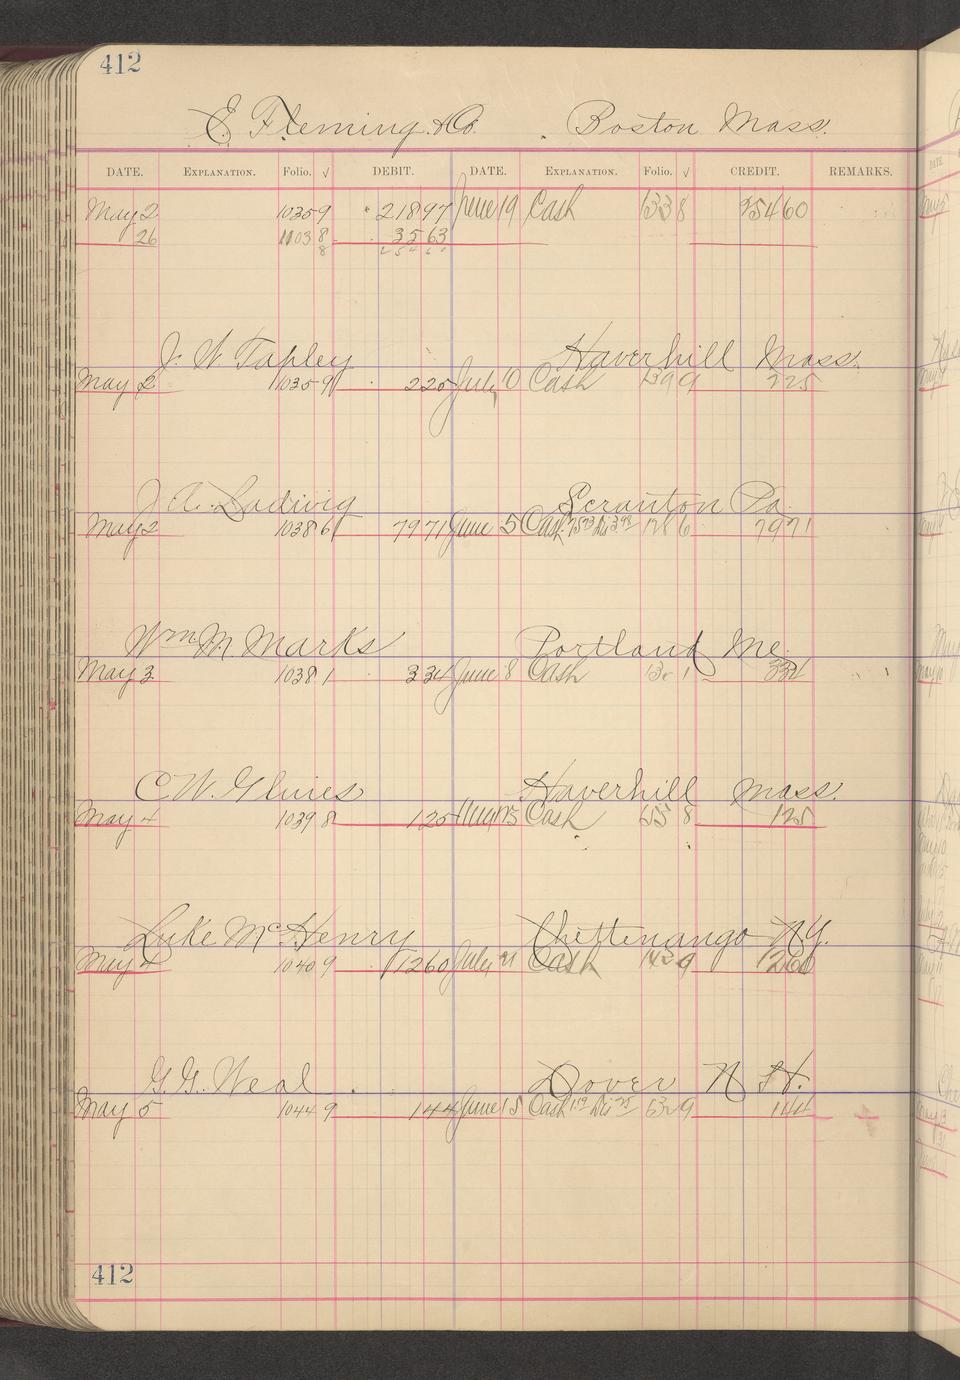 412
E. Fleming & Co. Boston Mass.
DATE. EXPLANATION. Folio. √ DEBIT. DATE. EXPLANATION. Folio. √ CREDIT. REMARKS.
May 2 10359 21897 June 19 Cash 1338 25460
26 11038 3563
8 25460
J. W. Tapley Haverhill Mass.
May 2 10359 225 July 10 Cash 1399 225
J. A. Ladwig Scranton Pa.
May 2 10386 7971 June 5 Cash Dis 7971
Wm M. Marks Portland Me.
May 3 10381 334 June 8 Cash 334
C. W. Glines Haverhill Mass.
May 4 10398 125 Cash 125
Luke McHenry Chittenango N.Y.
May 4 10409 1260 July 21 Cash 1260
G. G. Neal Dover N. H.
May 5 10449 144 June 15 Cash Dis 144
412